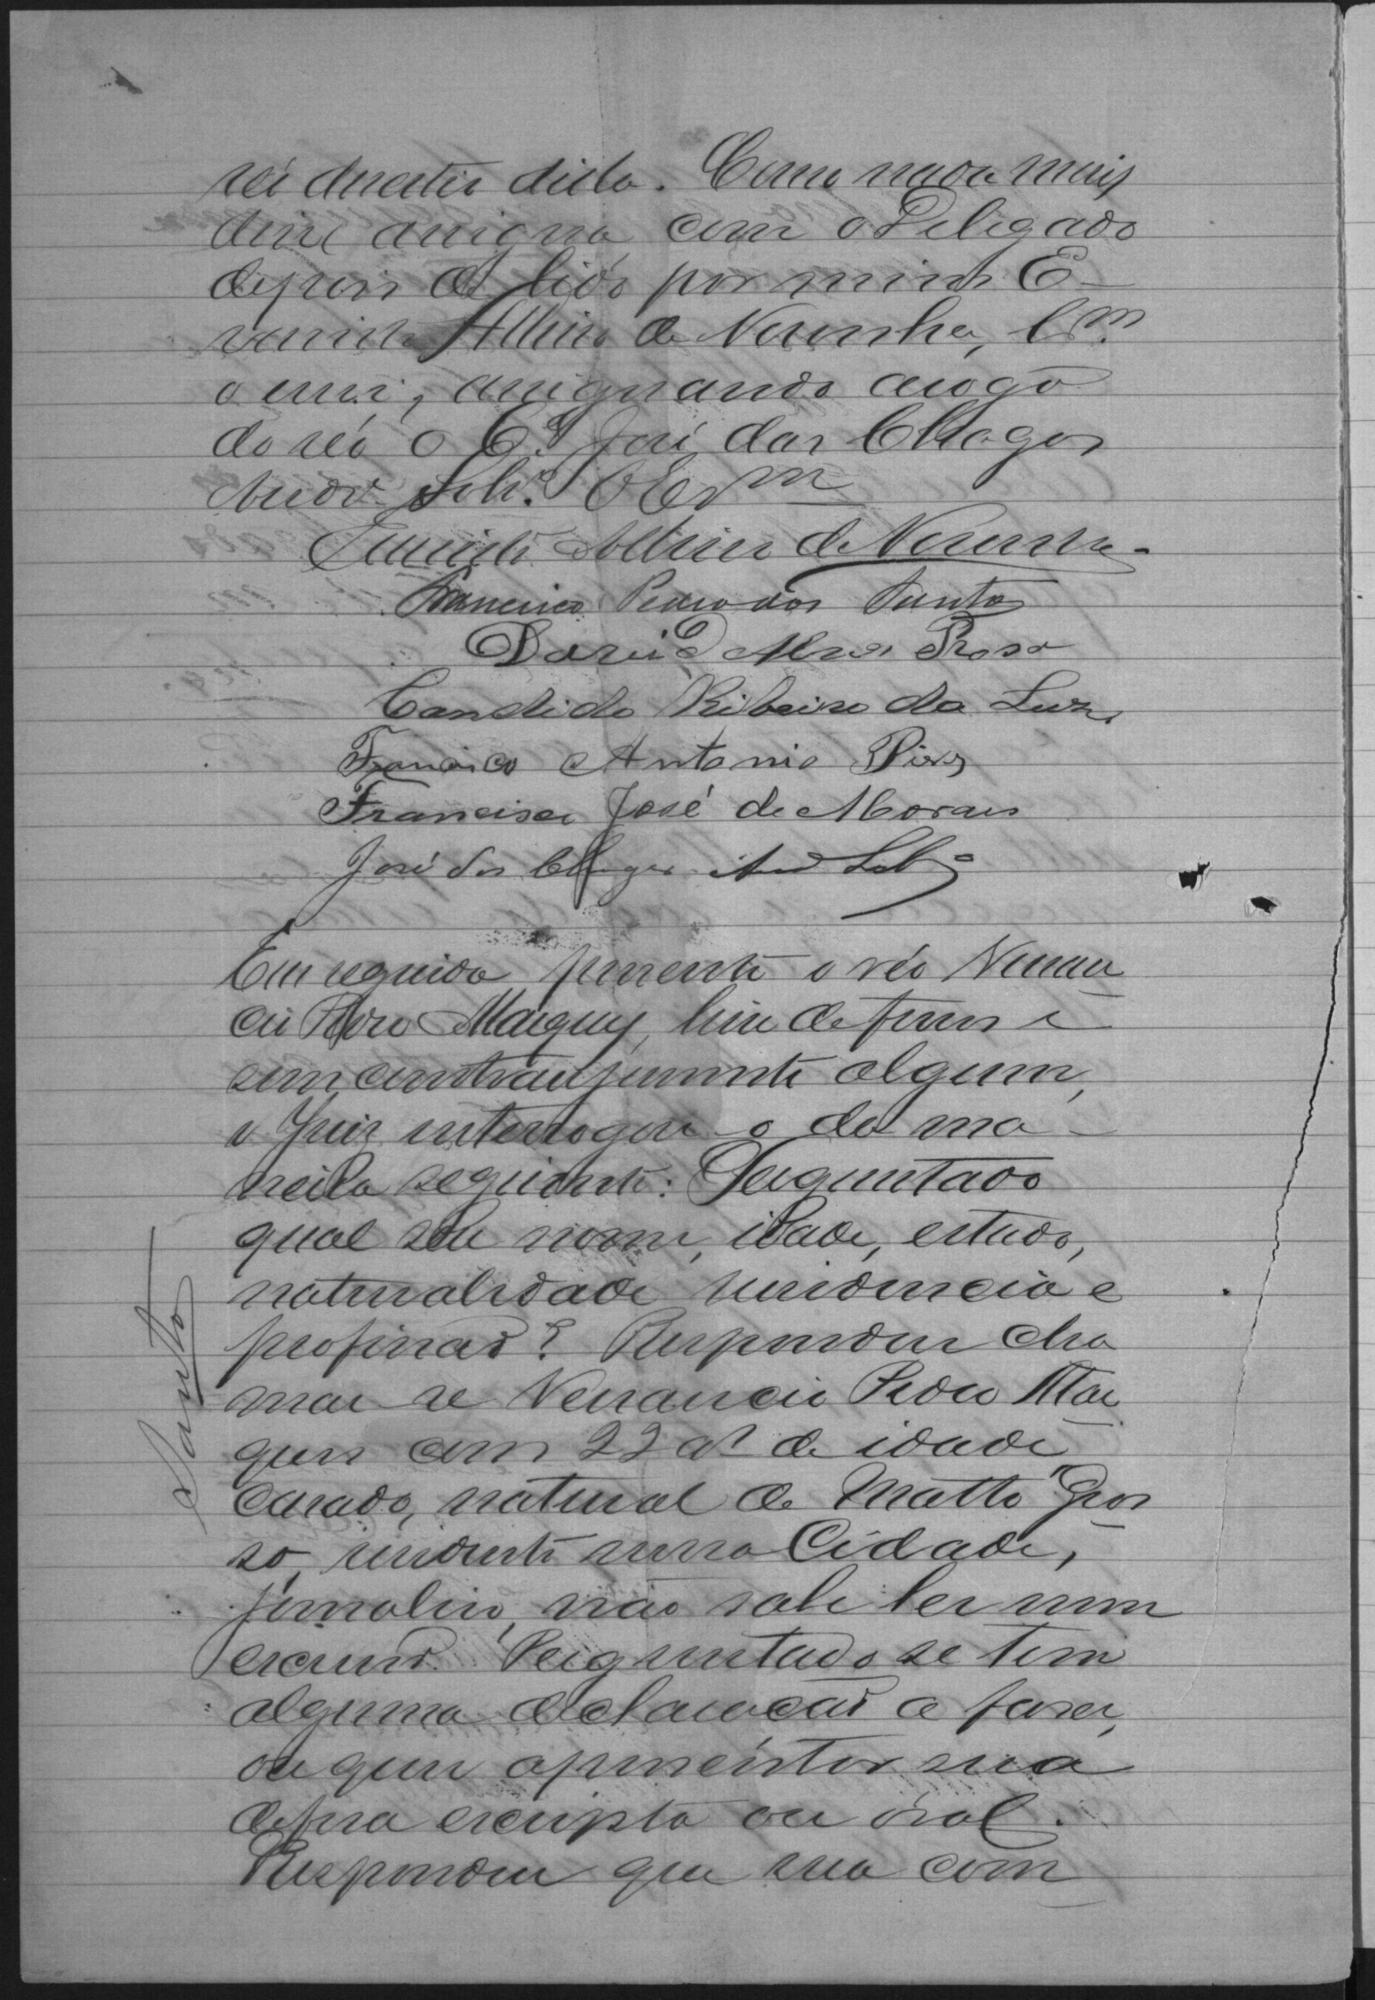 dicta. Como nada mais
disse assigna com o Delegado
depois de lido por mim E-
varisto Albino de Noronha, Em
o escrevi, assignando a rogo
do réo o Cd. José das Chagas
Andr. Sobr.º O Esm
Evaristo Albino de Noronha
Francisco Pedro dos Santos
Dario Alves Rosa
Candido Ribeiro da Luz,
Francisco Antonio Pires
Francisco José de Moraes
José das Chagas And Sobº
Em seguida presente o réo Venan
cio Pedro Marques, livre de ferros e
sem constrangimento algum,
o Juiz interrogou-o da ma-
neira seguinte: Perguntado
qual seu nome, idade, estado,
naturalidade residencia e
profissão? Respondeu cha
mar se Venancio Pedro Mar
ques com 22 as de idade
casado, natural de Matto Gros
so, residente nessa Cidade,
jornaleiro, não sabe ler nem
escrever. Perguntado se tem
alguma declaração a faser,
ou quer apresentar sua
defesa escripta ou oral.
Respondeu que sua com
Santos